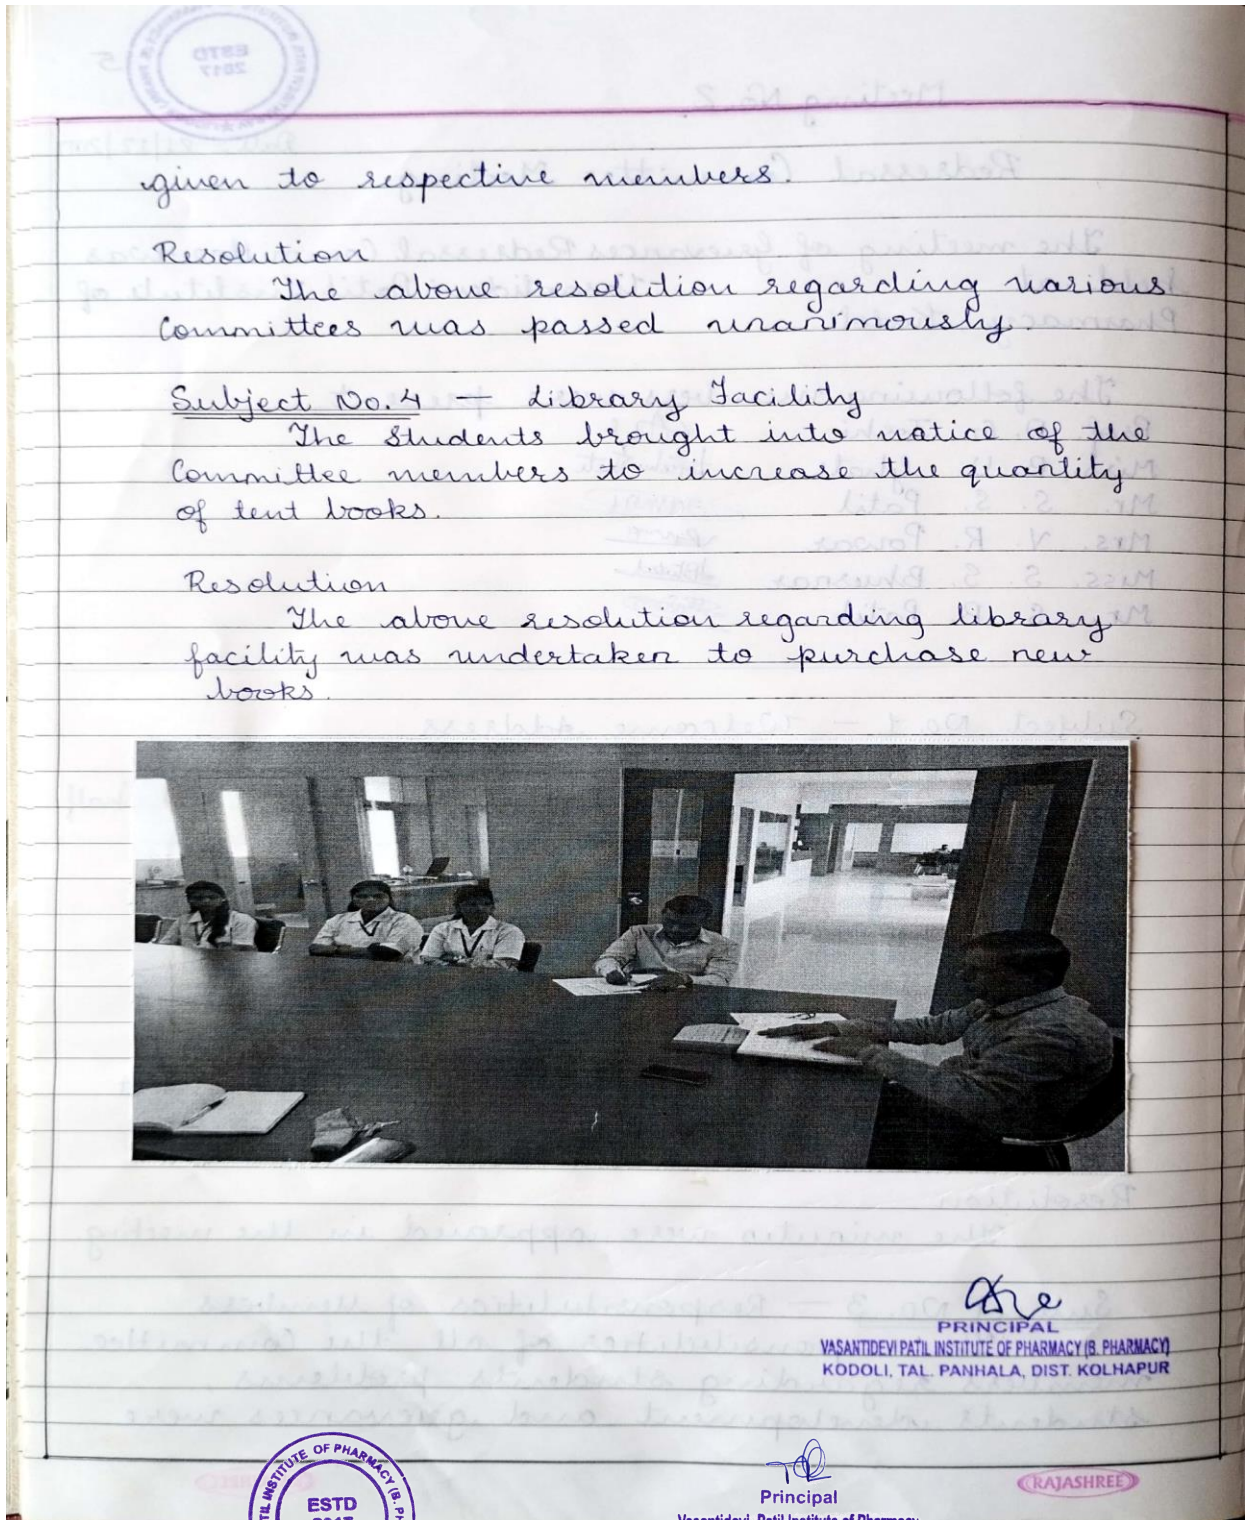 given to respective members.
Resolution
The above resolution regarding various
Committees was passed unanimously.
Subject No. 4 — Library Facility
The Students brought into notice of the
Committee members to increase the quantity
of text books.
Resolution
The above resolution regarding library
facility was undertaken to purchase new
books.
PRINCIPAL
VASANTIDEVI PATIL INSTITUTE OF PHARMACY (B. PHARMACY)
KODOLI, TAL. PANHALA, DIST. KOLHAPUR
INSTITUTE OF PHARMACY (B.
ESTD
2017
Principal
Vasantidevi Patil Institute of Pharmacy
RAJASHREE